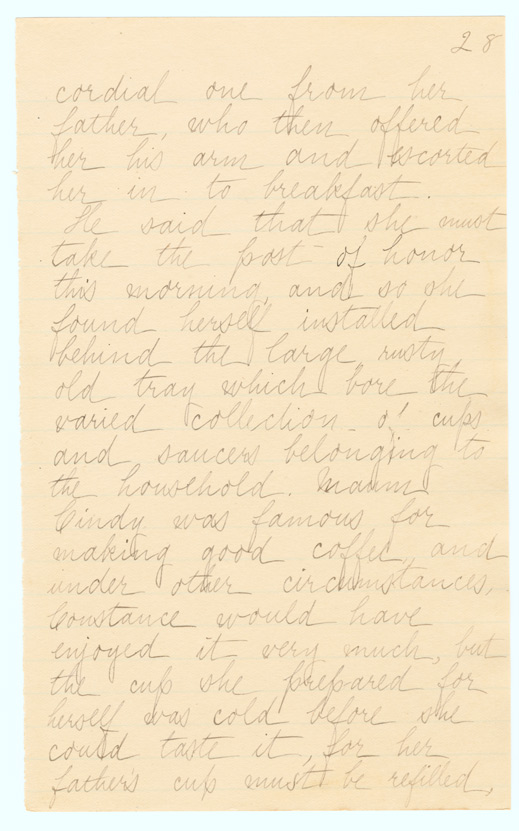 28
cordial one from her
father, who then offered
her his arm and escorted
her in to breakfast.
He said that she must
take the post of honor
this morning, and so she
found herself installed
behind the large rusty
old tray which bore the
varied collection of cups
and saucers belonging to
the household. Maum
Cindy was famous for
making good coffee, and
under other circumstances,
Constance would have
enjoyed it very much, but
the cup she prepared for
herself was cold before she
could taste it, for her
father's cup must be refilled,